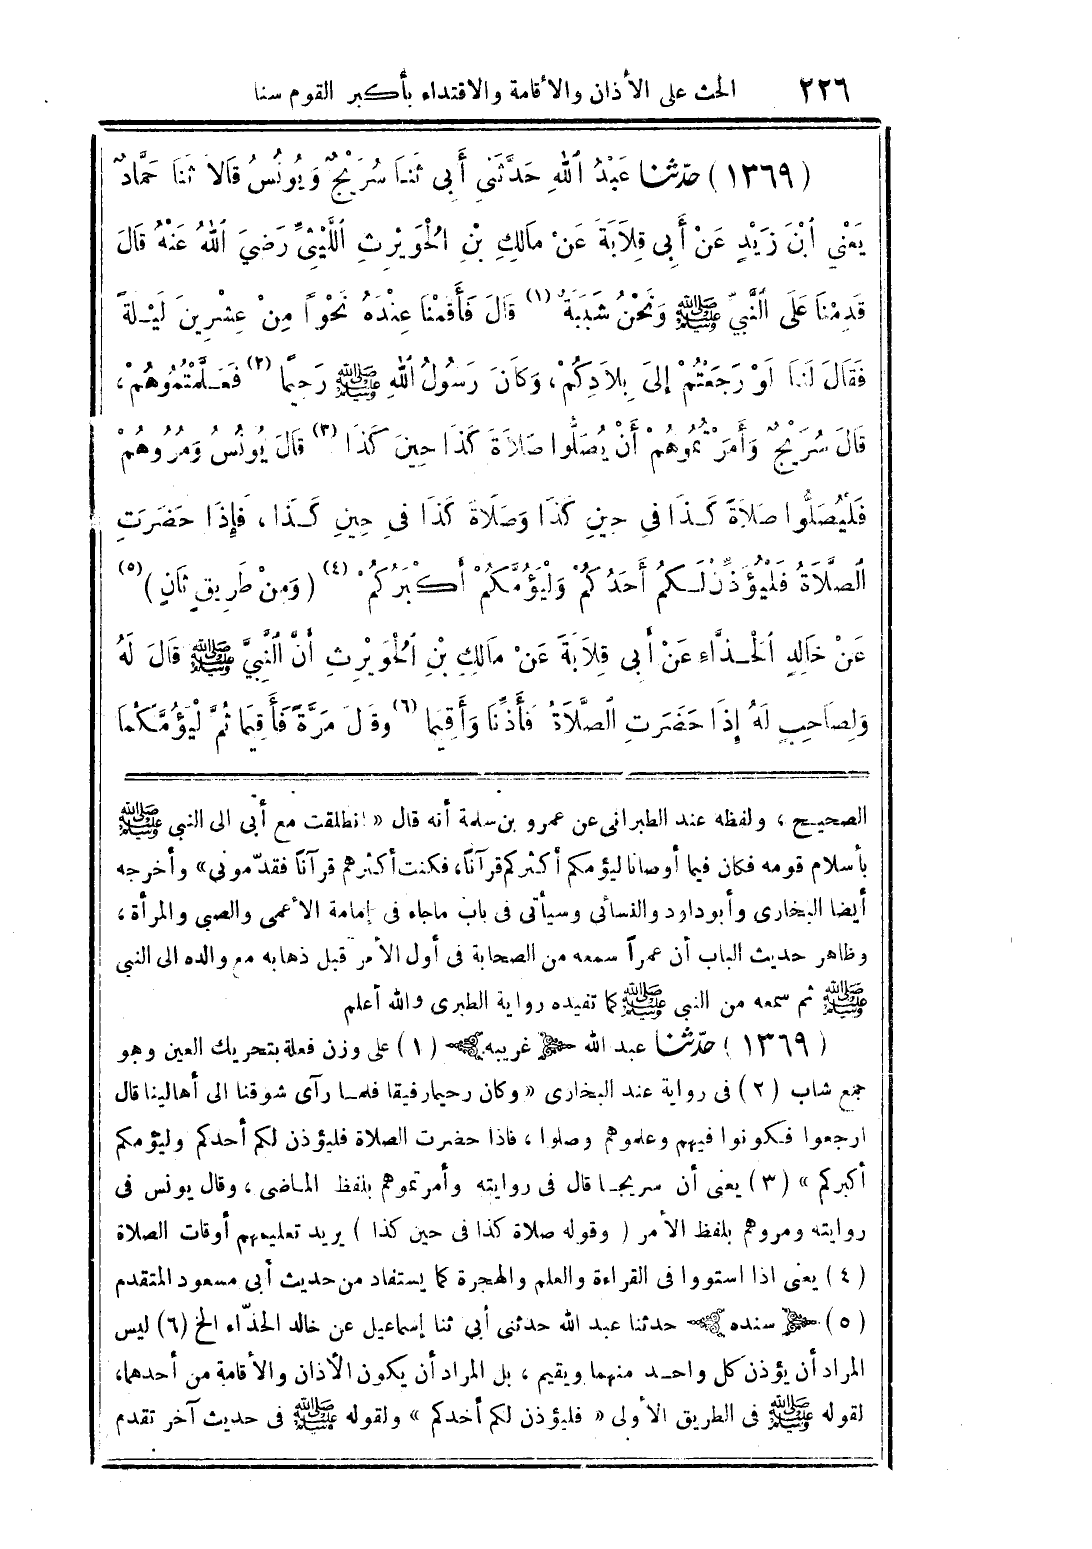 ٢٢٦ الحث على الأذان والأقامة والاقتداء بأكبر القوم سنا
(١٣٦٩) حدّثنا عَبْدُ ٱللهِ حَدَّثَنِى أَبِى ثَنَا سُرَيْجٌ وَيُونُسُ قَالاَ ثَنَا حَمَّادٌ
يَعْنِي ٱبْنَ زَيْدٍ عَنْ أَبِى قِلاَبَةَ عَنْ مَالِكِ بْنِ ٱلْحُوَيْرِثِ ٱللَّيْثِىِّ رَضِيَ ٱللهُ عَنْهُ قَالَ
قَدِمْنَا عَلَى ٱلنَّبِيِّ ﷺ وَنَحْنُ شَبَبَةٌ (١) قَالَ فَأَقَمْنَا عِنْدَهُ نَحْوًا مِنْ عِشْرِينَ لَيْلَةً
فَقَالَ لَنَا لَوْ رَجَعْتُمْ إِلىَ بِلاَدِكُمْ، وَكَانَ رَسُولُ ٱللهِ ﷺ رَحِيمًا (٢) فَعَلَّمْتُمُوهُمْ،
قَالَ سُرَيْجٌ وَأَمَرْتُمُوهُمْ أَنْ يُصَلُّوا صَلاَةَ كَذَا حِينَ كَذَا (٣) قَالَ يُونُسُ وَمُرُوهُمْ
فَلْيُصَلُّوا صَلاَةَ كَذَا فِى حِينِ كَذَا وَصَلاَةَ كَذَا فِى حِينِ كَذَا، فَإِذَا حَضَرَتِ
ٱلصَّلاَةُ فَلْيُؤَذِّنْ لَكُمُ أَحَدُكُمْ وَلْيَؤُمَّكُمْ أَكْبَرُكُمْ (٤) (وَمِنْ طَرِيقٍ ثَانٍ) (٥)
عَنْ خَالِدٍ ٱلْحَذَّاءِ عَنْ أَبِى قِلاَبَةَ عَنْ مَالِكِ بْنِ ٱلْحُوَيْرِثِ أَنَّ ٱلنَّبِيَّ ﷺ قَالَ لَهُ
وَلِصَاحِبٍ لَهُ إِذَا حَضَرَتِ ٱلصَّلاَةُ فَأَذِّنَا وَأَقِيمَا (٦) وقَالَ مَرَّةً فَأَقِيمَا ثُمَّ لْيَؤُمَّكُمَا
الصحيح، ولفظه عند الطبرانى عن عمرو بن سلمة أنه قال « انطلقت مع أبى الى النبى ﷺ
بأسلام قومه فكان فيما أوصانا ليؤمكم أكثركم قرآنًا، فكنت أكثرهم قرآنًا فقدّمونى» وأخرجه
أيضا البخارى وأبوداود والنسائى وسيأتى فى باب ماجاء فى إمامة الأعمى والصبى والمرأة،
وظاهر حديث الباب أن عمراً سمعه من الصحابة فى أول الأمر قبل ذهابه مع والده الى النبى
ﷺ ثم سمعه من النبى ﷺ كما تفيده رواية الطبرى والله أعلم
(١٣٦٩) حدّثنا عبد الله غريبه (١) على وزن فعلة بتحريك العين وهو
جمع شاب (٢) فى رواية عند البخارى «وكان رحيما رفيقا فلما رآى شوقنا الى أهالينا قال
ارجعوا فكونوا فيهم وعلموهم وصلوا، فاذا حضرت الصلاة فليؤذن لكم أحدكم وليؤمكم
أكبركم» (٣) يعنى أن سريجا قال فى روايته وأمرتموهم بلفظ الماضى، وقال يونس فى
روايته ومروهم بلفظ الأمر (وقوله صلاة كذا فى حين كذا) يريد تعليمهم أوقات الصلاة
(٤) يعنى اذا استووا فى القراءة والعلم والهجرة كما يستفاد من حديث أبى مسعود المتقدم
(٥) سنده حدثنا عبد الله حدثنى أبي ثنا إسماعيل عن خالد الحذّاء الخ (٦) ليس
المراد أن يؤذن كل واحد منهما ويقيم، بل المراد أن يكون الأذان والأقامة من أحدهما،
لقوله ﷺ فى الطريق الأولى « فليؤذن لكم أحدكم » ولقوله ﷺ فى حديث آخر تقدم